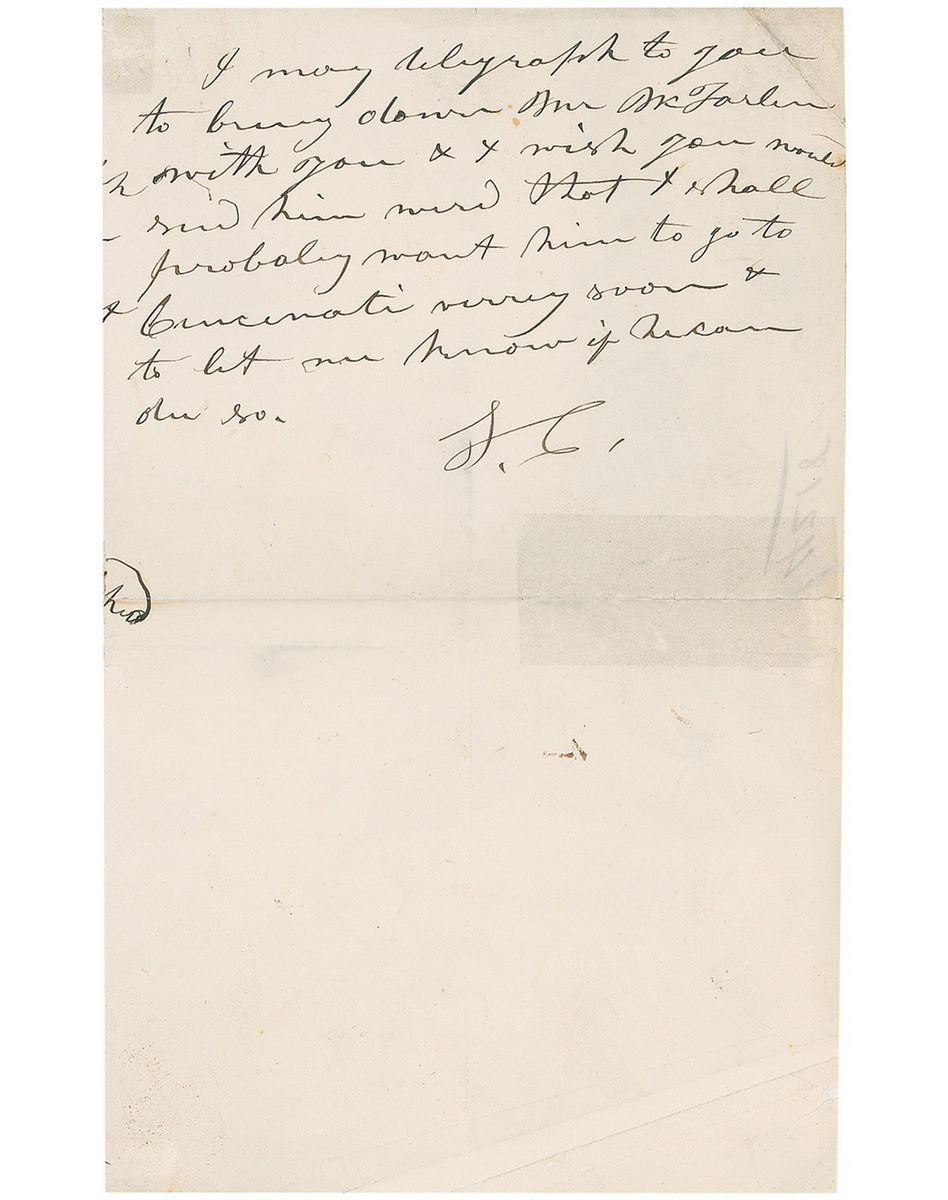 I may telegraph to you
to bring down Mr McFarlin
with you & I wish you would
send him word that I shall
probaley want him to go to
Cincenati verrey soon &
to let me know if he can
du so.
S. C.